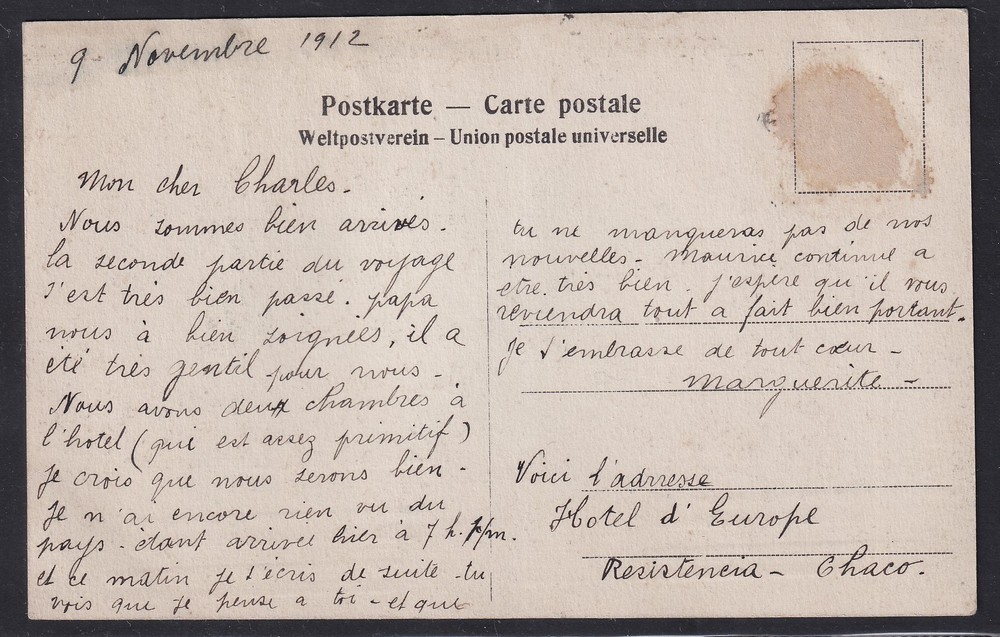 9 Novembre 1912
Postkarte — Carte postale
Weltpostverein – Union postale universelle
Mon cher Charles.
Nous sommes bien arrivés.
la seconde partie du voyage
s'est très bien passé. papa
nous à bien soignées, il a
été très gentil pour nous -
Nous avons deux chambres à
l'hotel (qui est assez primitif)
je crois que nous serons bien -
je n'ai encore rien vu du
pays - étant arrivée hier à 7 h. p/m.
et ce matin je t'écris de suite - tu
vois que je pense a toi - et que
tu ne manqueras pas de nos
nouvelles - Maurice continue a
etre très bien. j'espère qu'il vous
reviendra tout a fait bien portant.
je t'embrasse de tout cœur -
Marguerite -
Voici l'adrresse
Hotel d'Europe
Resistencia - Chaco.